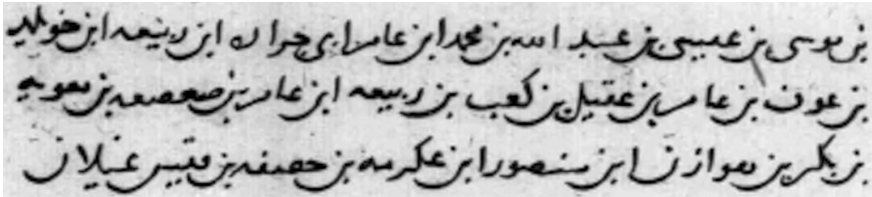 بن موسى بن عيسى بن عبد الله بن محمد ابن عامر ابى جراده ابن ربيعه ابن خويلد
بن عوف بن عامر بن عقيل بن كعب بن ربيعه ابن عامر بن صعصعه بن معويه
بن بكر بن هوازن ابن منصور ابن عكرمه بن حصفه بن قيس عيلان